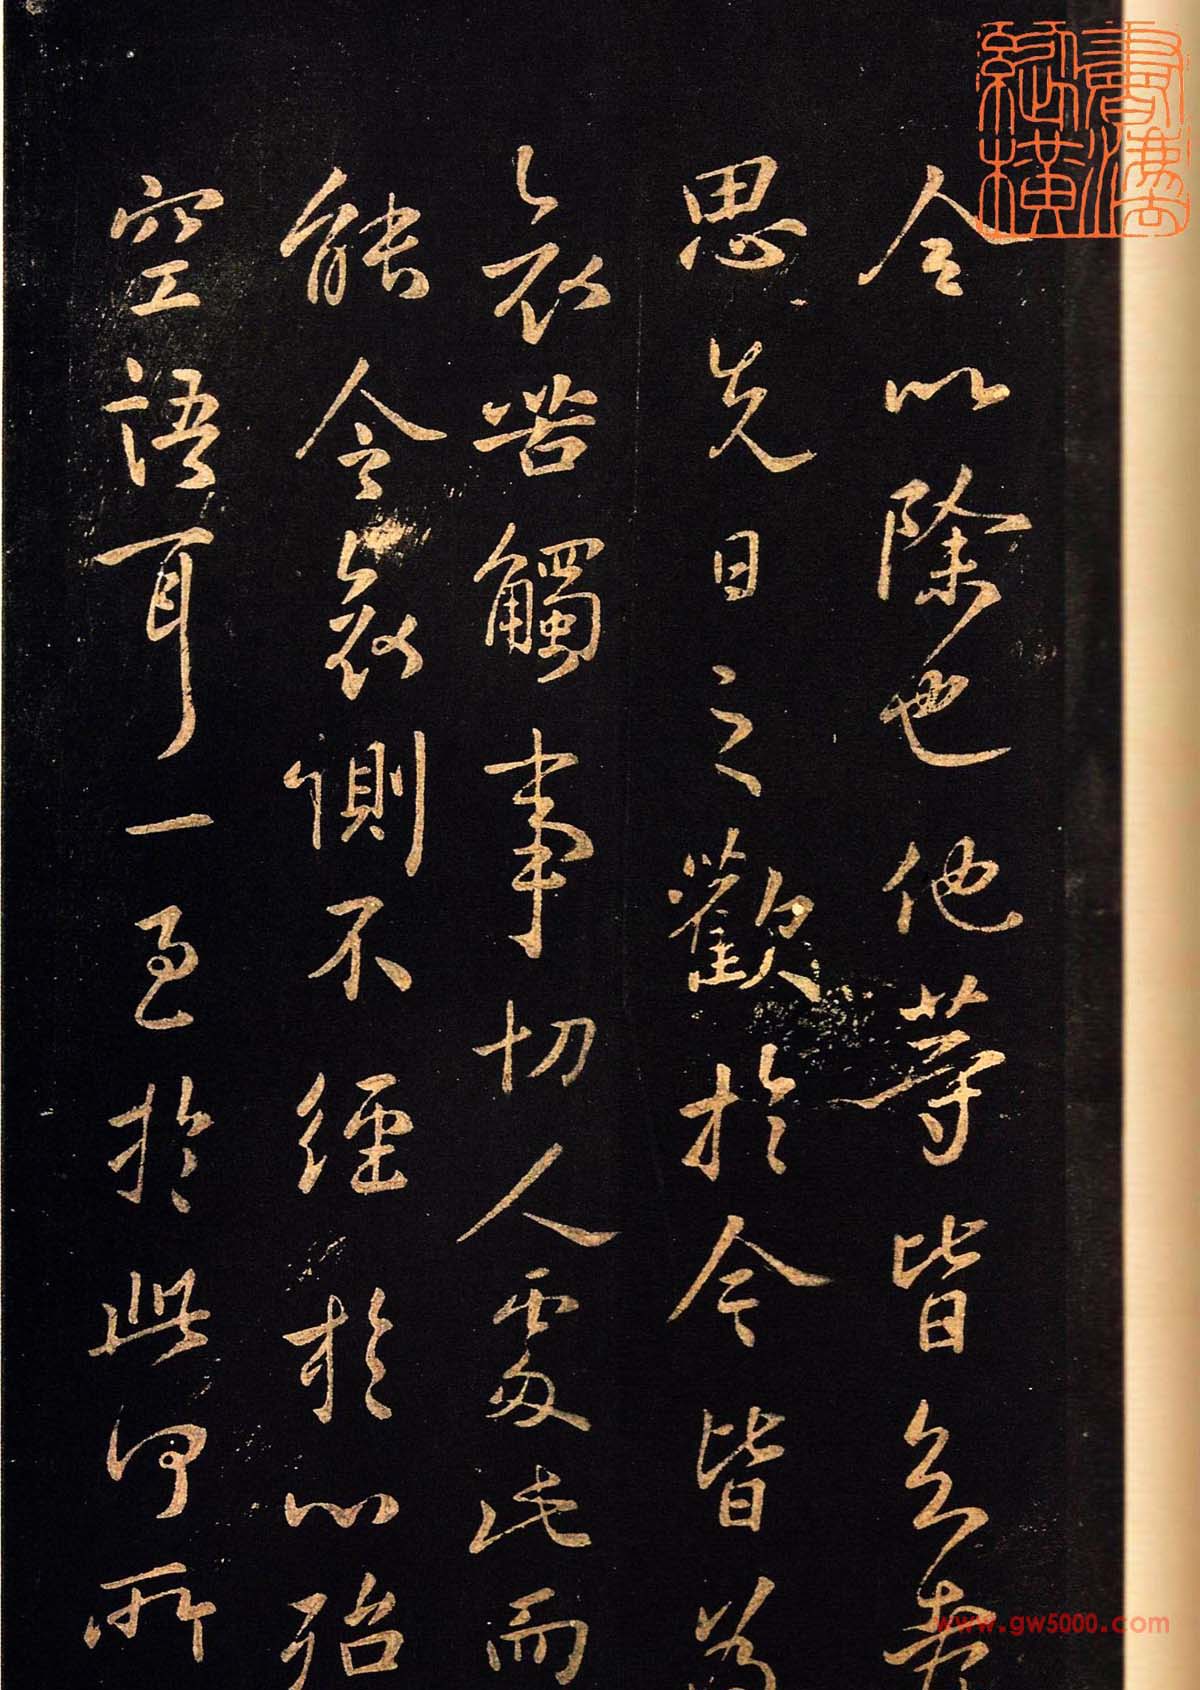 書灋縱橫
以除也他等皆
思先日之歡於今皆為
哀苦觸事切人處此而
能令哀惻不經於心殆
空語耳一至於此何所
www.gw5000.com